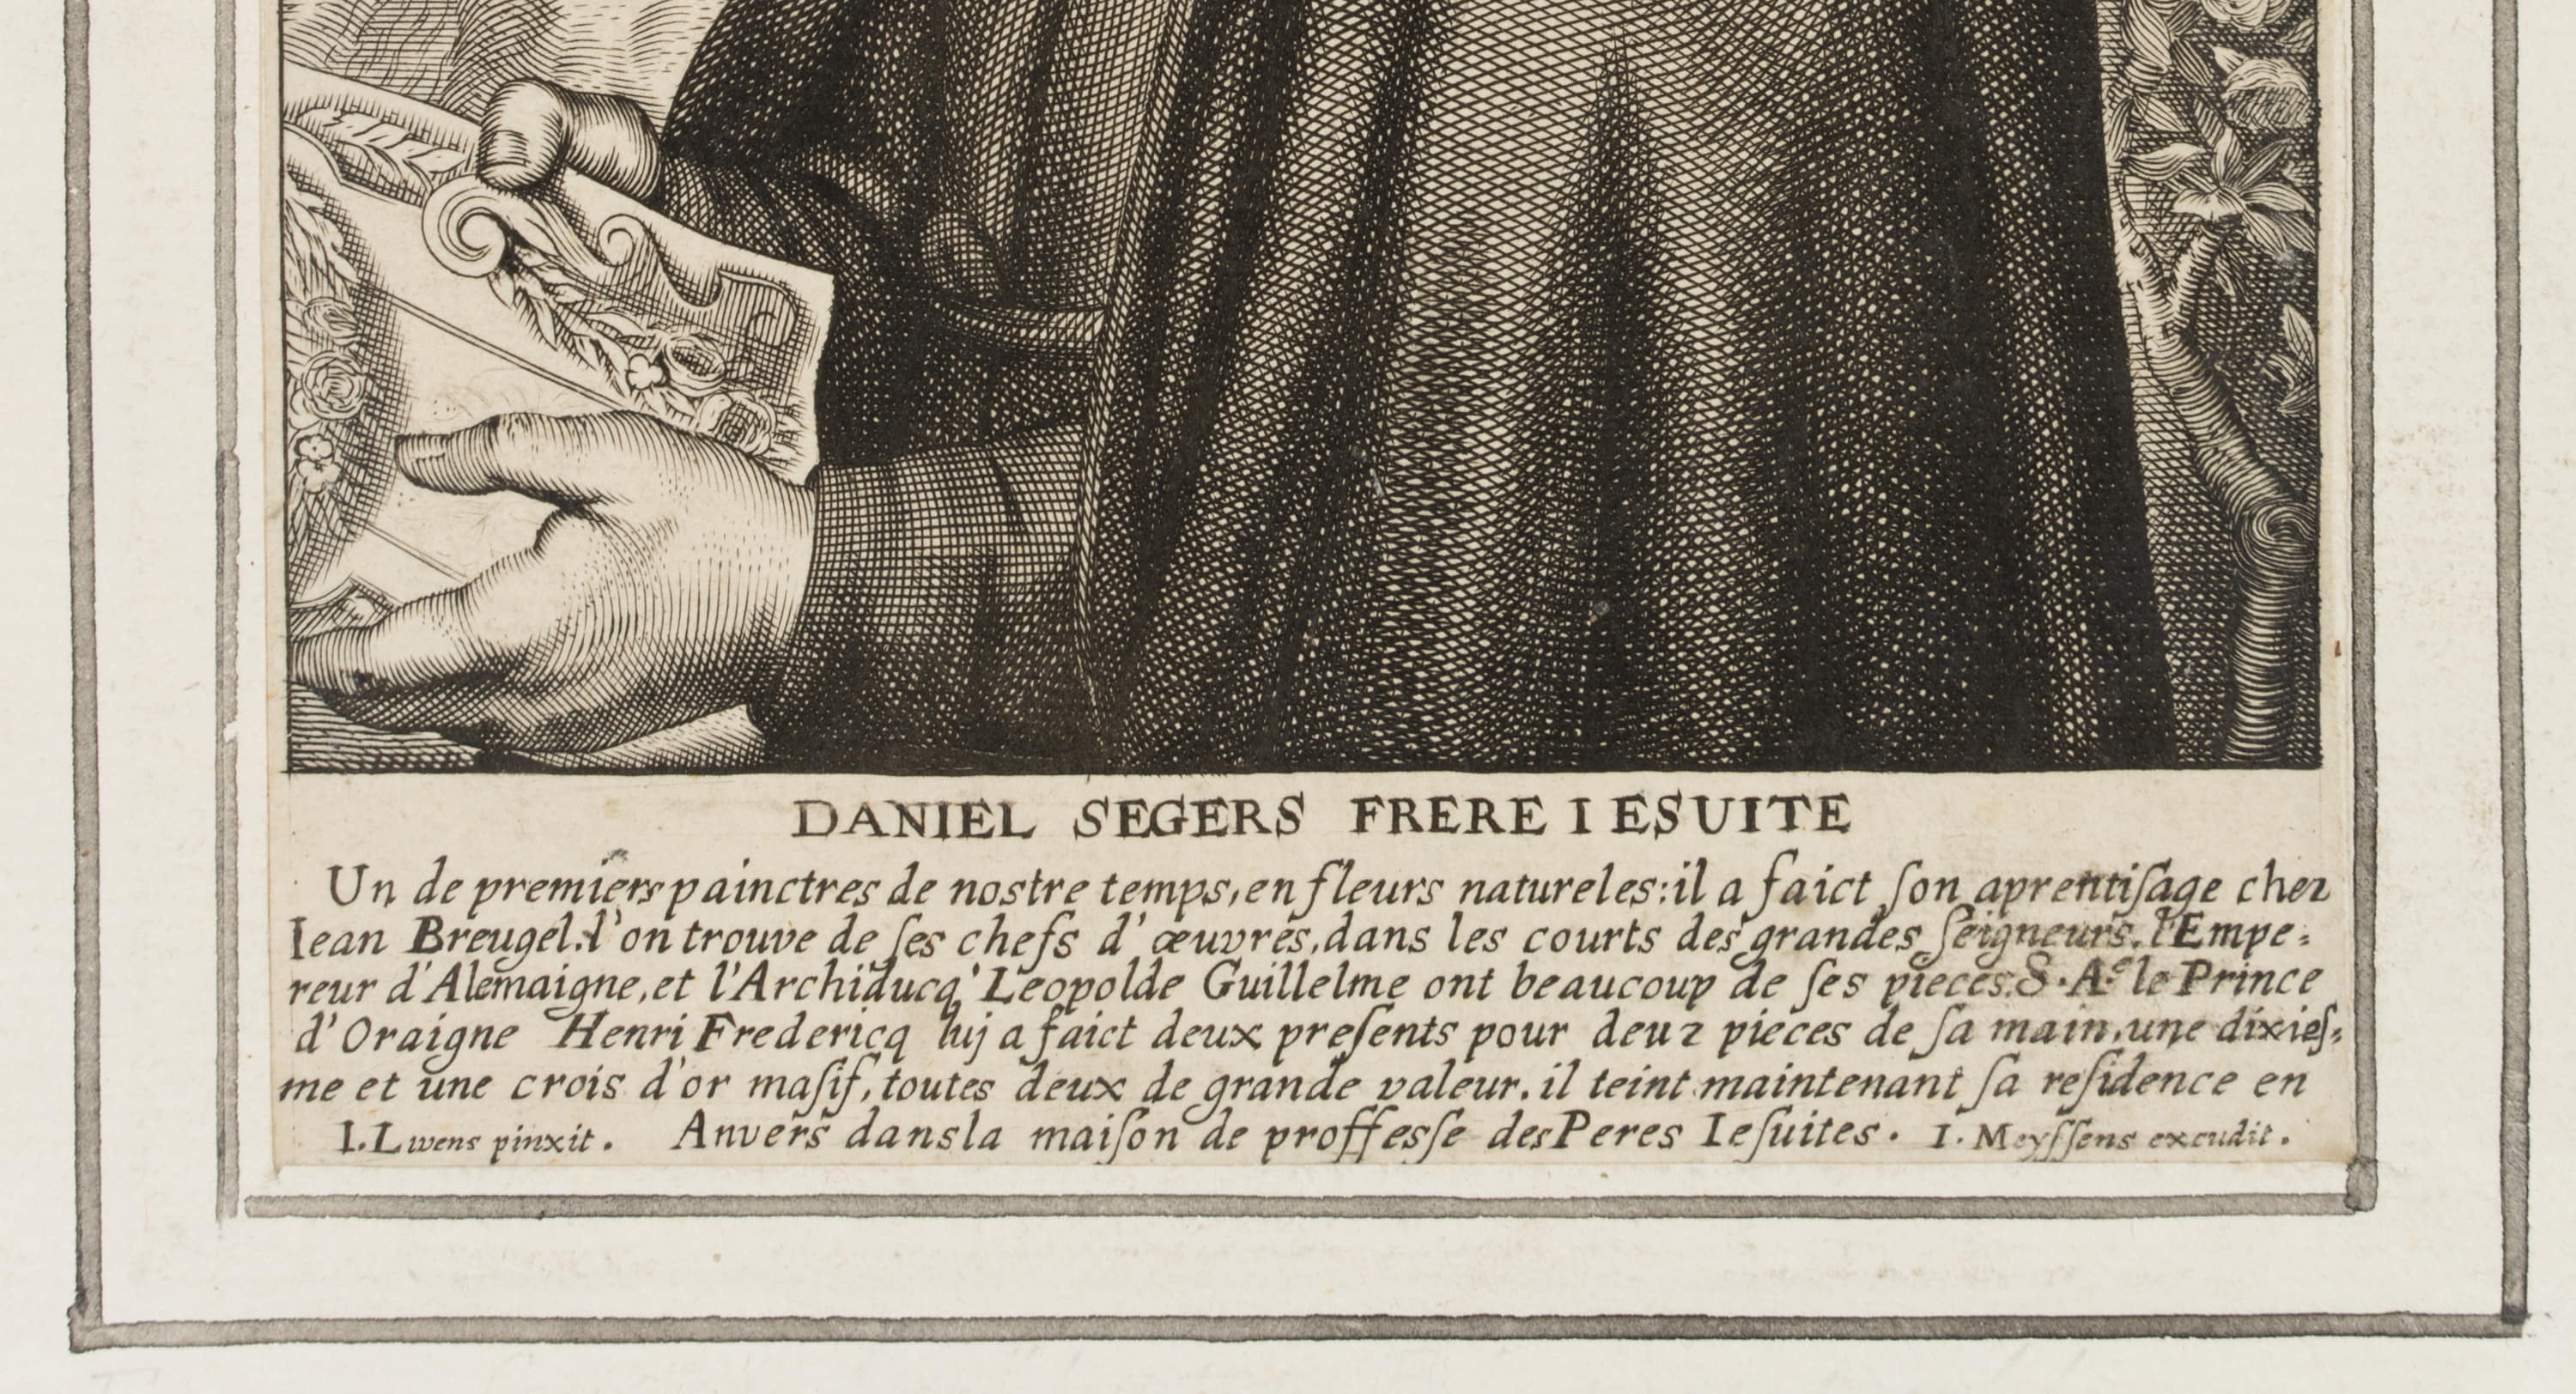 DANIEL SEGERS FRERE IESUITE
Un de premiers painctres de nostre temps, en fleurs natureles: il a faict ſon aprentiſage chez
Iean Breugel. l'on trouve de ſes chefs d'œuvres, dans les courts des grandes ſeigneurs. l'Empe-
reur d'Alemaigne, et l'Archiducq' Leopolde Guillelme ont beaucoup de ſes pieces. S. A.e le Prince
d'Oraigne Henri Fredericq luij a faict deux preſents pour deuz pieces de ſa main, une dixieſ-
me et une crois d'or maſiſ, toutes deux de grande valeur. il teint maintenant ſa reſidence en
I. Lwens pinxit. Anvers dans la maiſon de proffeſſe des Peres Ieſuites. I. Meyſſens excudit.